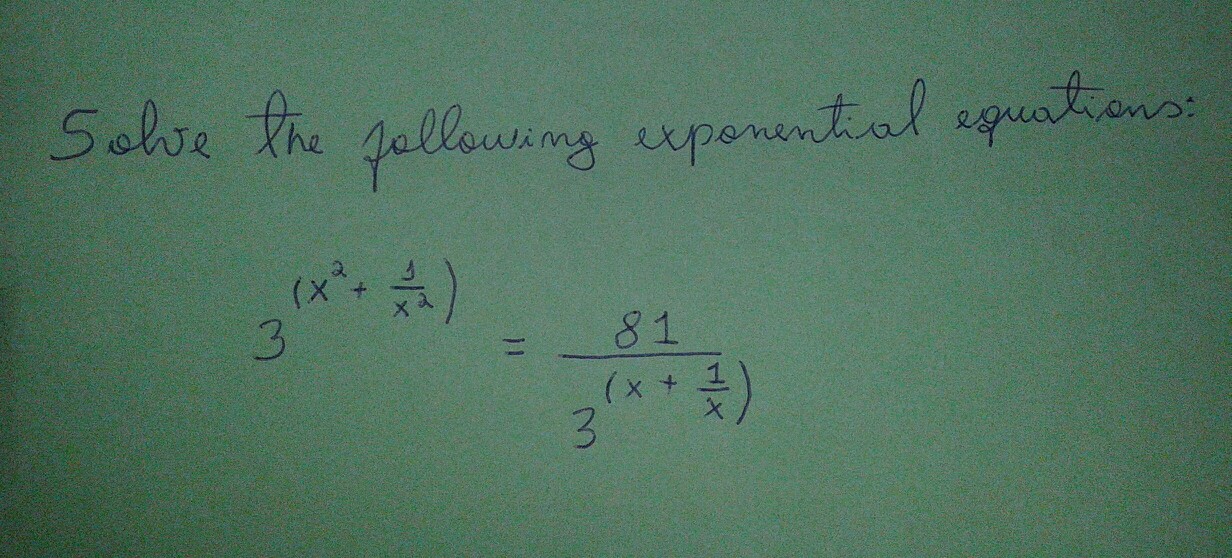 Solve the following exponential equations:
3^(x² + 1/x²) = 81 / 3^(x + 1/x)